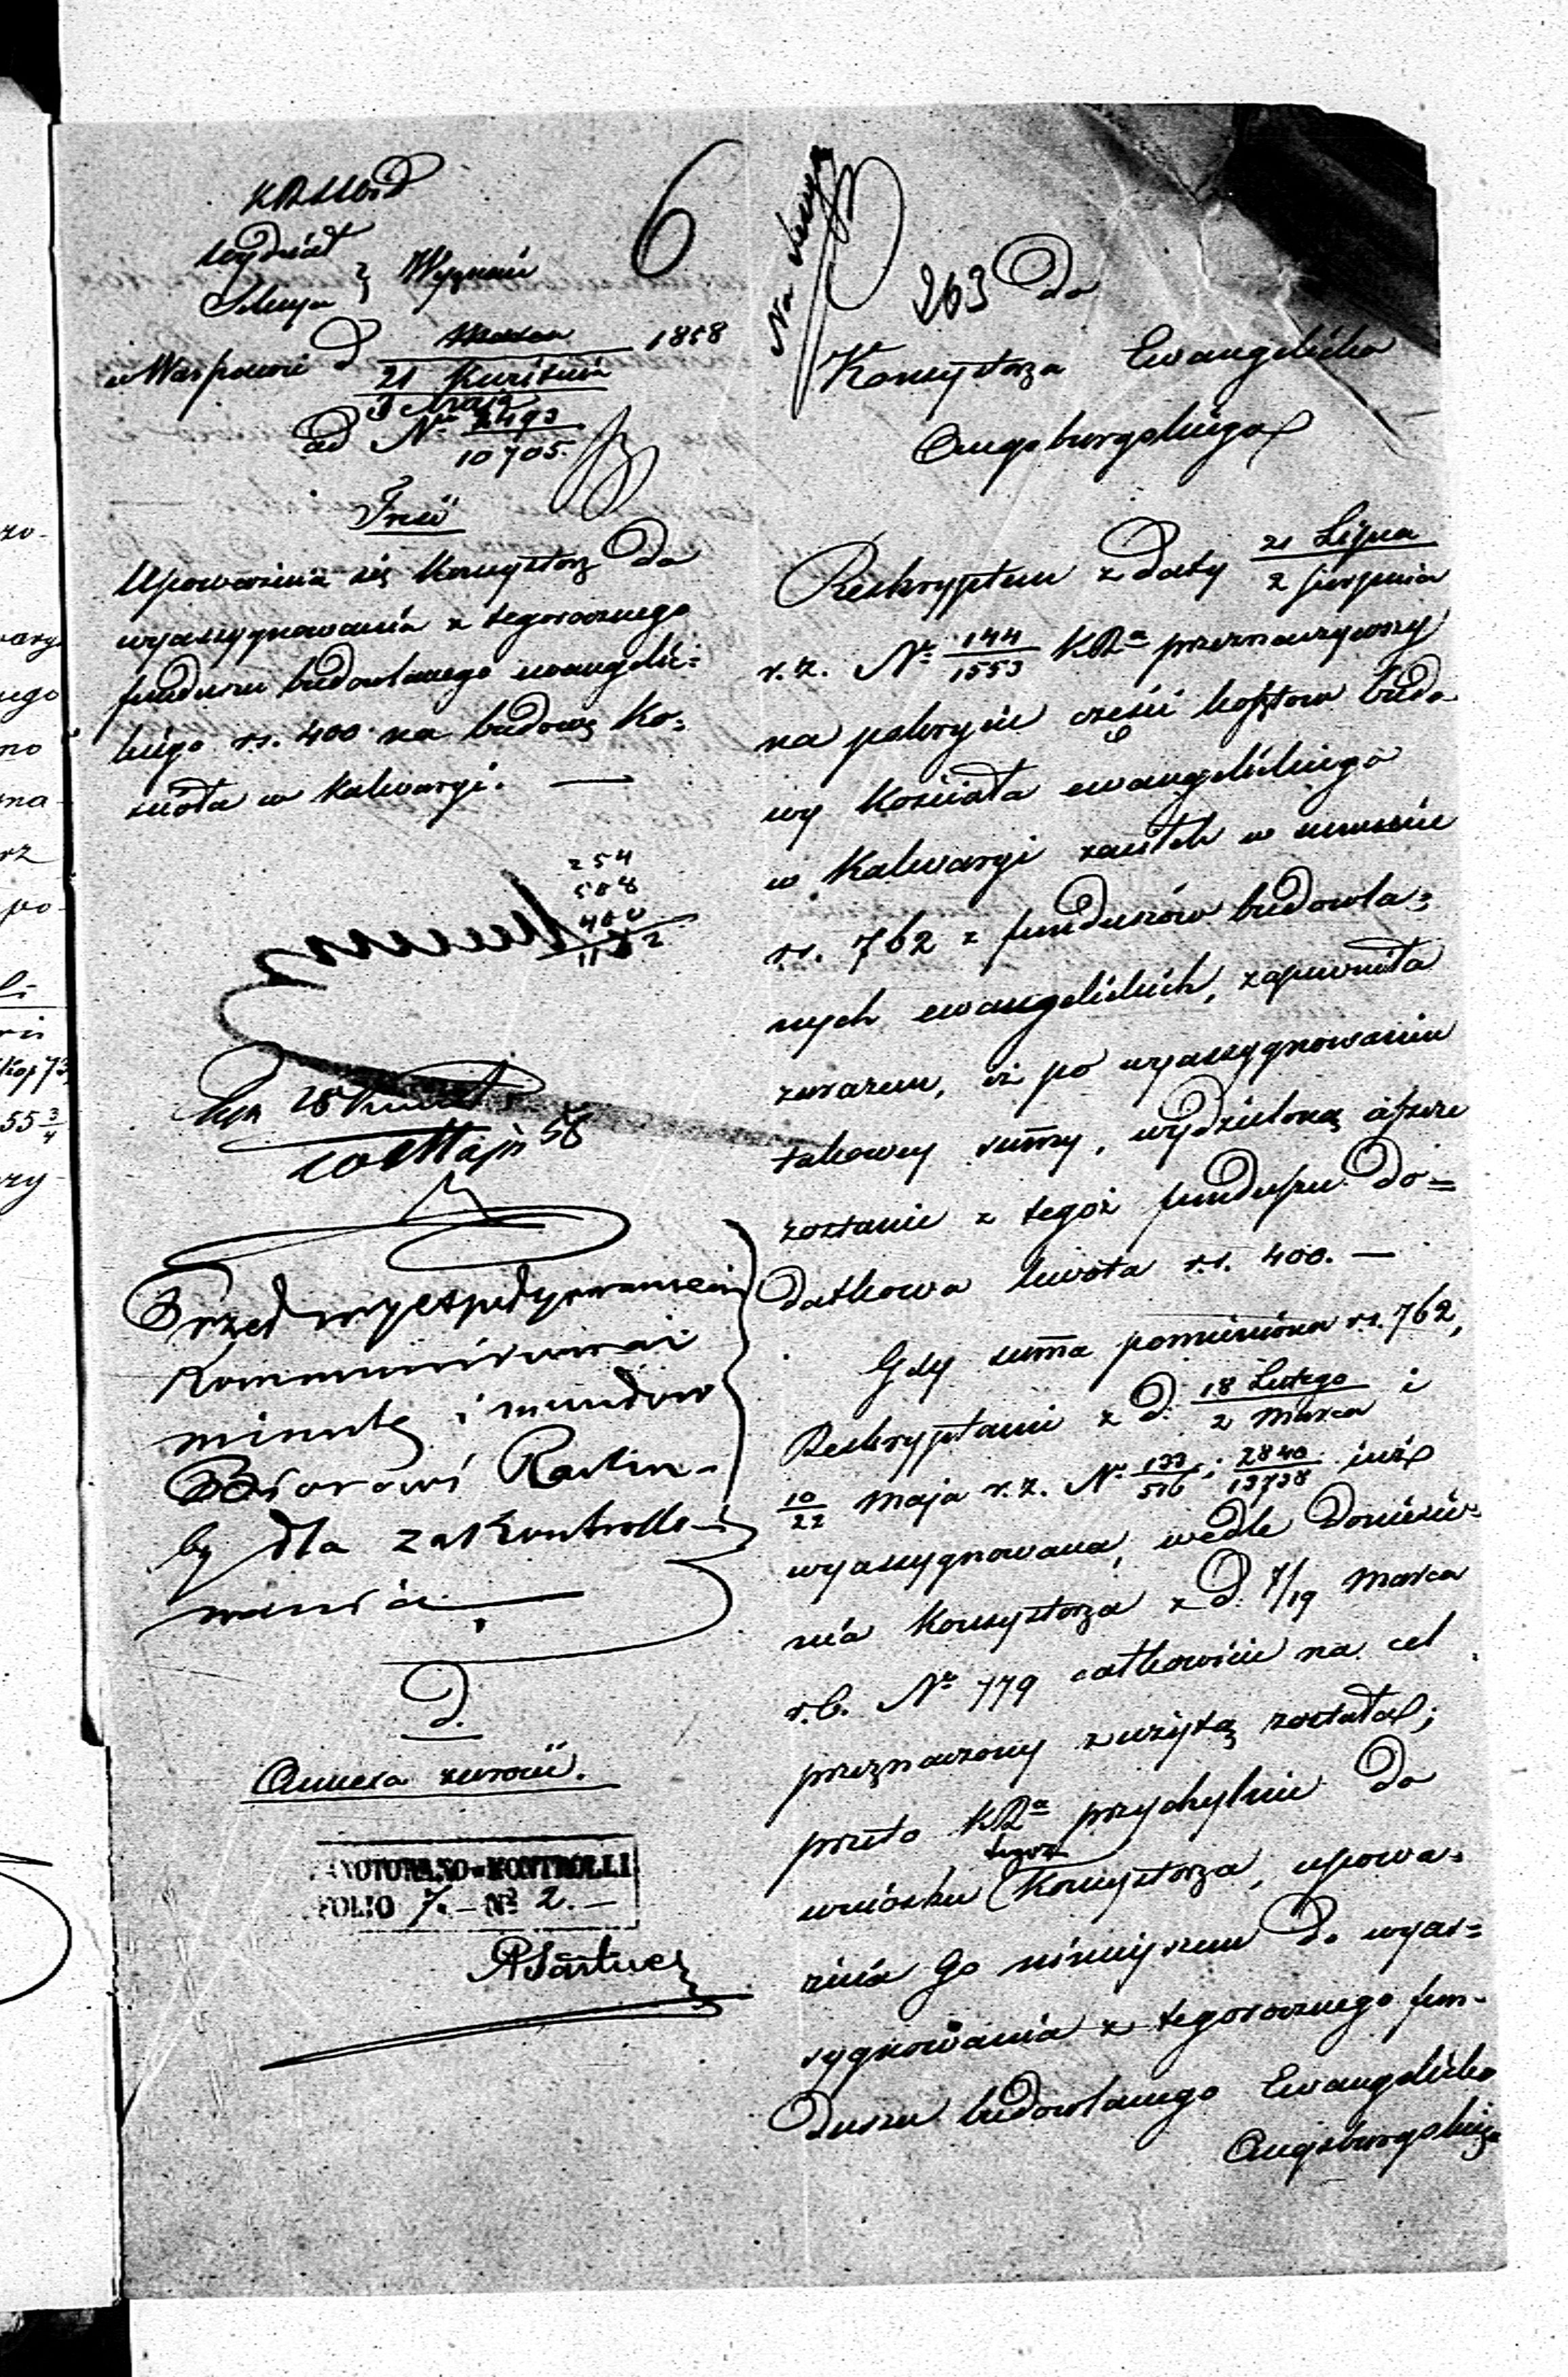 6
KRSWiD
Wydział
Sekcya } Wyznań
w Warszawie d Marca 1858
21 Kwietnia
3 Maja
ad Nr 2493
10705.
Treść
Upoważnia się Konsystorz do
wyassygnowania z tegorocznego
funduszu budowlanego ewangelic=
kiego rs. 400 na budowę Ko=
ścioła w Kalwaryi. —
254
508
400
1162
28 Kwiet
10 Maja 58
Przed wyexpedyowaniem
Kommunikować
minutę i mundum
Biorowi Rachu-
by dla zakontrollo-
wania.
D.
Annexa zwrócić.
ZANOTOWANO w KONTROLLI
FOLIO 7. — No 2. —
Na
263 Do
Konsystorza Ewangelicko
Augsburgskiego
Reskryptem z daty 21 Lipca
2 Sierpnia
r. z. Nr 144
1553 KRa przeznaczywszy
na pokrycie części kosztow budo
wy Kościoła ewangelickiego
w Kalwaryi zasiłek w summie
rs. 762 z funduszów budowla=
nych ewangelickich, zapewniła
zarazem, iż po wyassygnowaniu
takowey summy, wydzieloną jeszcze
zostanie z tegoż funduszu do=
datkowa kwota rs. 400. —
Gdy summa pomieniona rs. 762,
Reskryptami z d. 18 Lutego
2 Marca i
10
22 Maja r. z. Nr 133
516 i 2840
13738 już
wyassygnowana, wedle doniesie=
nia Konsystorza z d. 7/19 Marca
r. b. Nr 779 całkowicie na cel
przeznaczony zużytą została;
przeto KRa przychylnie do
wniosku tegoż Konsystorza, upowa=
żnia Go niniejszem do wyas=
sygnowania z tegorocznego fun=
duszu budowlanego Ewangelicko
Augsburgskiego